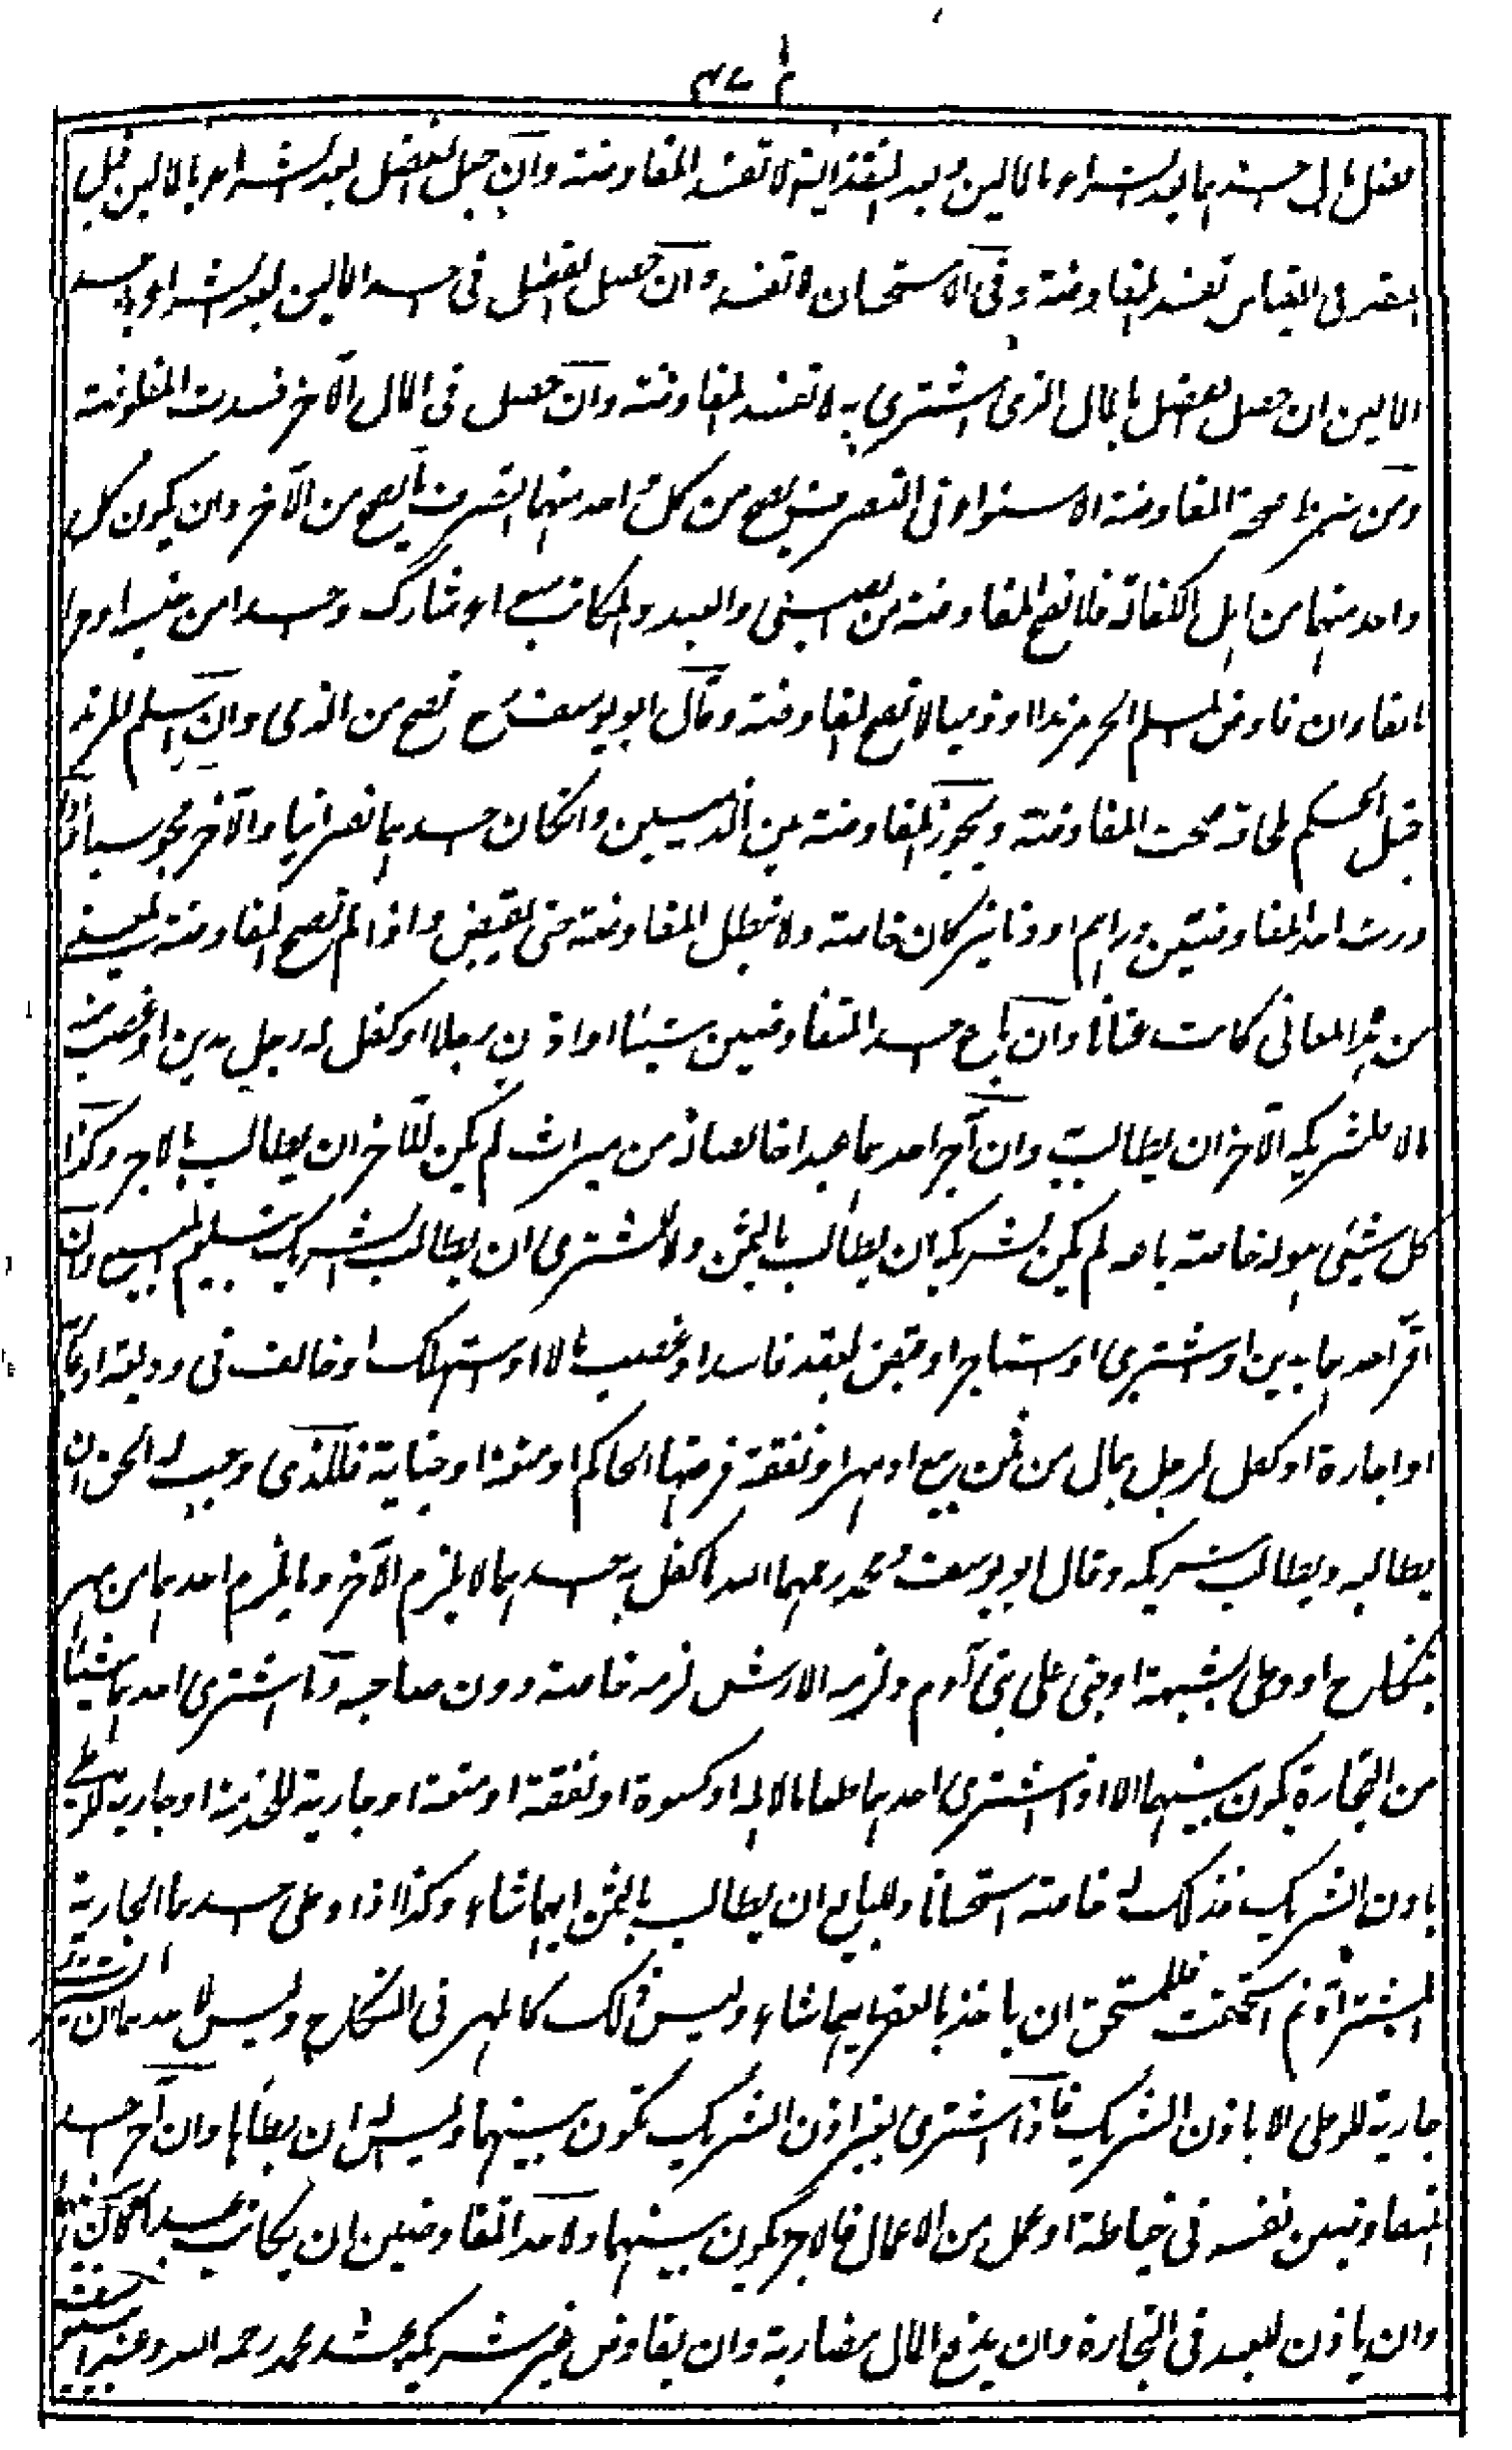 فضل مال احدهما بعد الشراء بالمالين وبعد النقد انه لا تفسد المفاوضة وان حصل الفضل بعد الشراء بالمالين قبل
النقد في القياس تفسد المفاوضة وفي الاستحسان لا تفسد وان حصل الفضل في احد المالين بعد الشراء باحد
المالين ان حصل الفضل بالمال الذى اشترى به لا تفسد المفاوضة وان حصل في المال الآخر فسدت المفاوضة
ومن شرط صحة المفاوضة الاستواء في التصرف يصح من كل واحد منهما التصرف ما يصح من الآخر وان يكون كل
واحد منهما من اهل الكفالة فلا تصح المفاوضة من الصبي والعبد والمكاتب سواء شارك واحدا من جنسه او حرا
بالغا وان فاوض المسلم الحر مرتدا او ذميا لا تصح المفاوضة وقال ابو يوسف رح تصح من الذمى وان اسلم المرتد
قبل الحكم بلحاقه صحت المفاوضة ويجوز المفاوضة بين الذميين وان كان احدهما نصرانيا والآخر مجوسيا وان
ورث احد المفاوضين دراهم او دنانير كان خاصة ولا تبطل المفاوضة حتى يقبض واذا لم تصح المفاوضة لمعنى
من هذا المعاني كانت عنانا وان باع احد المتفاوضين شيئا او اذن رجلا او كفل له رجل بدين او غصب منه
مالا فلشريكه الآخر ان يطالب وان آجر احدهما عبدا خالصا له من ميراث لم يكن للآخر ان يطالب بالاجر وكذا
كل شيئ هو له خاصة باعه لم يكن لشريكه ان يطالب بالثمن ولا للمشترى ان يطالب الشريك بتسليم المبيع وان
اقر احدهما بدين او اشترى او استاجر او قبض بعقد فاسد او غصب مالا او استهلك او خالف في وديعة او عارية
او اجارة او كفل لرجل بمال من ثمن بيع او مهر او نفقة فرضها الحاكم او متعة او جناية فللذى وجب له الحق ان
يطالبه ويطالب شريكه وقال ابو يوسف ومحمد رحمهما الله ما كفل به احدهما لا يلزم الآخر وما يلزم احدهما من مهر
بنكاح او وطى بشبهة او جنى على بني آدم ولزمه الارش لزمه خاصة دون صاحبه وما اشترى احدهما شيئا
من التجارة يكون بينهما الا اذا اشترى احدهما طعاما لاهله او كسوة او نفقة او متعة او جارية للخدمة او جارية للوطى
باذن الشريك فذلك له خاصة استحسانا وللبايع ان يطالب بالثمن ايهما شاء وكذا اذا وطى احدهما الجارية
المشتراة ثم استحقت فللمستحق ان ياخذ بالعقر ايهما شاء وليس ذلك كالمهر في النكاح وليس لاحدهما ان يشترى
جارية للوطى الا باذن الشريك فاذا اشترى بغير اذن الشريك تكون بينهما وليس له ان يطأها وان آجر احد
المتفاوضين نفسه في خياطة او عمل من الاعمال فالاجر يكون بينهما ولاحد المتفاوضين ان يكاتب عبدا كان بينهما
وان ياذن للعبد في التجارة وان يدفع المال مضاربة وان يفاوض غير شريكه عند محمد رحمه الله وعند ابي يوسف